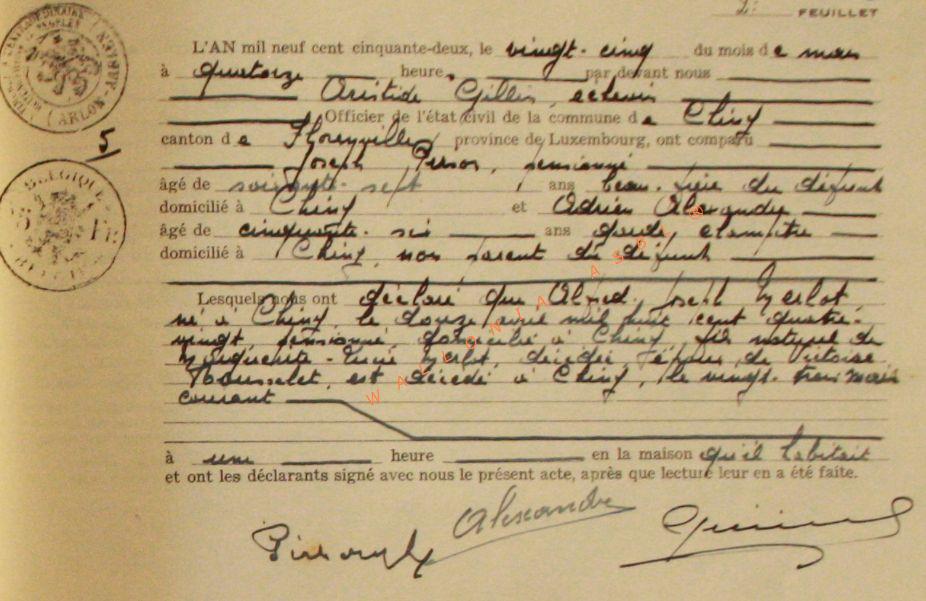 FEUILLET
L'AN mil neuf cent cinquante-deux, le vingt-cinq du mois de mars
à quatorze heure, par devant nous
Aristide Gillin, echevin
Officier de l'état civil de la commune de Chiny
canton de Florenville, province de Luxembourg, ont comparu
Joseph pensionné
âgé de soixante-sept ans beau-frère du défunt
domicilié à Chiny et Adrien Alexandre
âgé de cinquante-six ans garde champêtre
domicilié à Chiny, non parent du défunt
Lesquels nous ont déclaré que Alfred Joseph Merlot
né à Chiny, le douze avril mil huit cent quatre-
vingt, pensionné, domicilié à Chiny, fils naturel de
Marguerite Merlot, décédée, époux de Victoise
Rousselet, est décédé à Chiny, le vingt-trois mars
courant
à une heure en la maison qu'il habitait
et ont les déclarants signé avec nous le présent acte, après que lecture leur en a été faite.
Alexandre
ARLON
5
BELGIQUE
5 Fr
WALLONIA ASBL